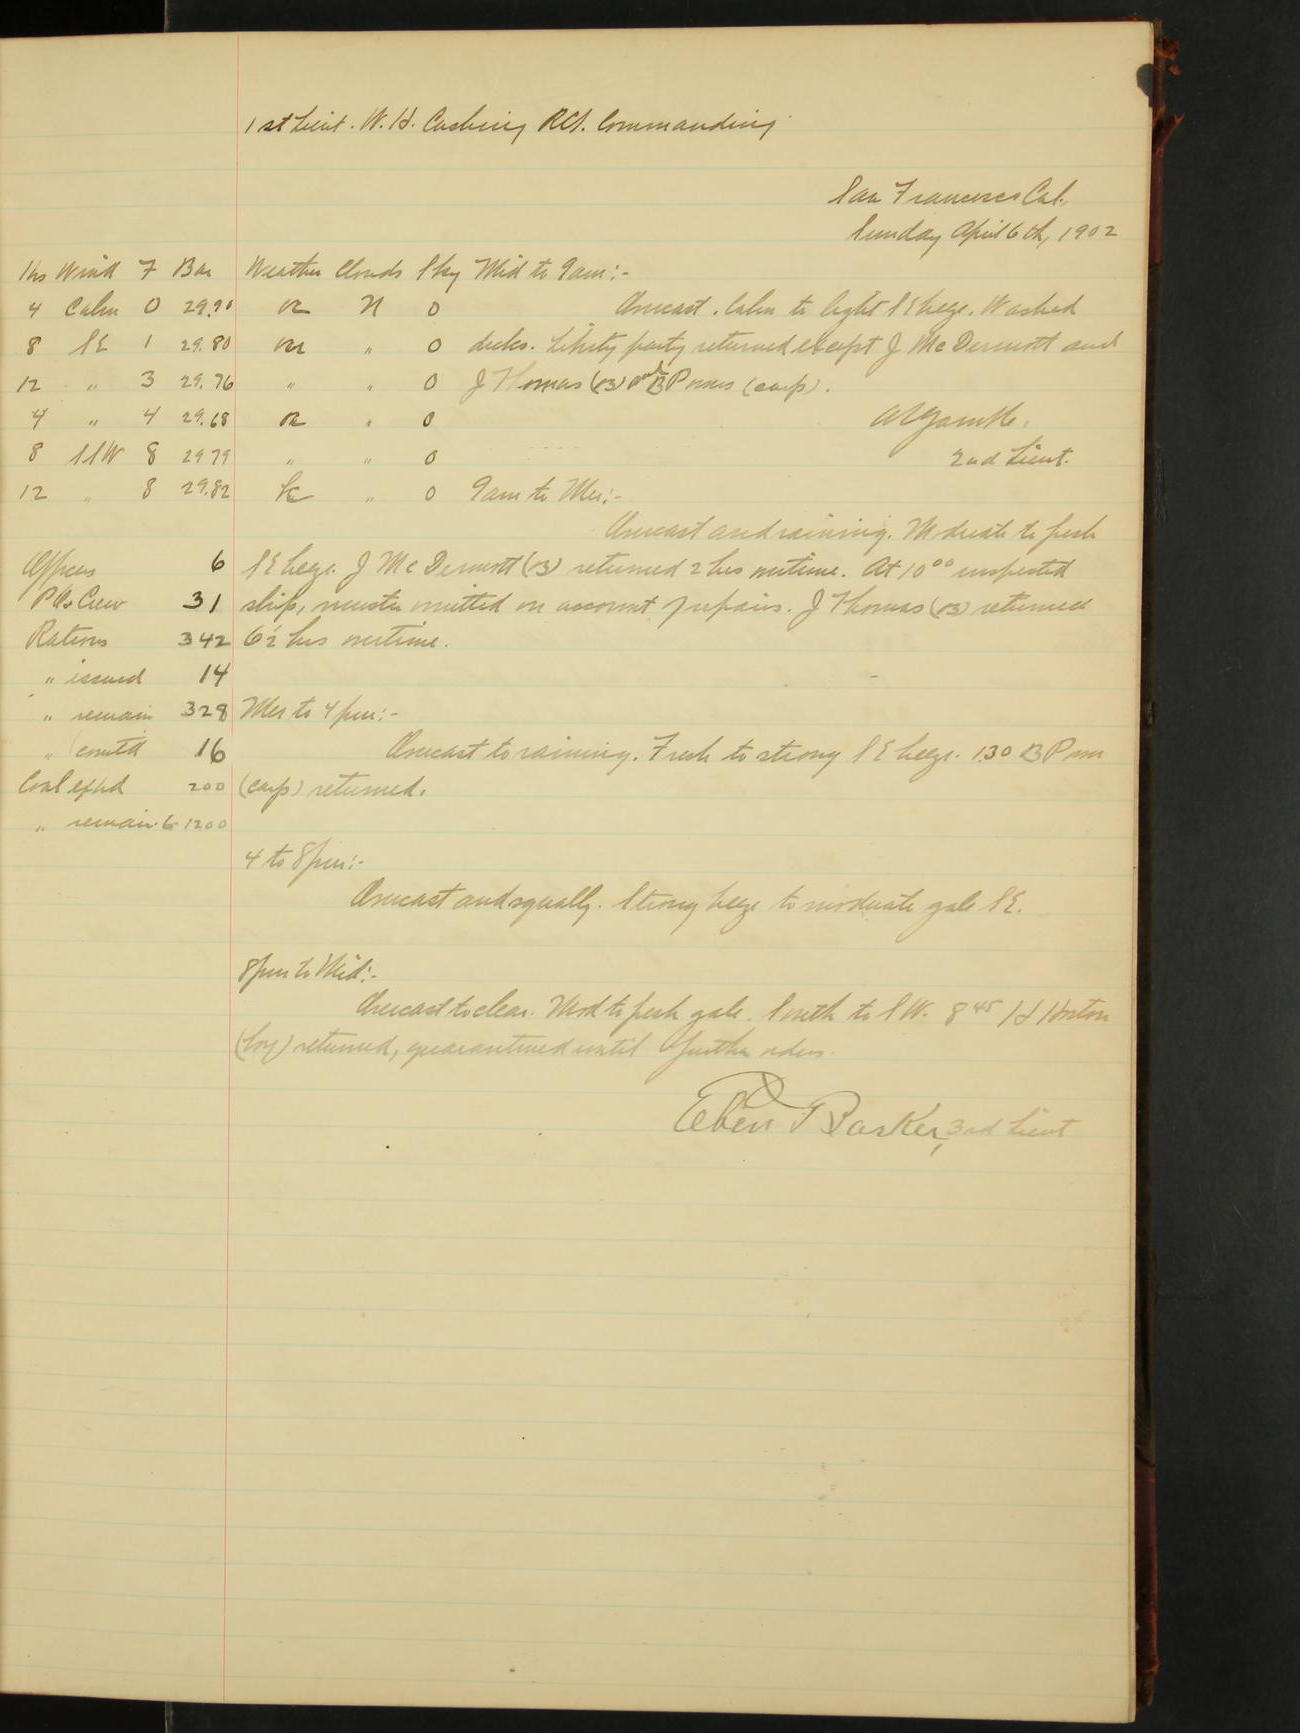 1st Lieut. W. H. Cushing RCS. Commanding
San Francisco Cal.
Sunday April 6th, 1902
Hrs Wind F Bar Weather Clouds Sky Mid to 9am:-
4 Calm 0 29.90 N 0 Overcast. Calm to light SE breeze. Washed
8 SE 1 29.80 " 0 decks. Liberty party returned except J McDermott and
12 " 3 29.76 " " 0 J Thomas (B) and B P (carp).
4 " 4 29.68 " 0
8 SSW 8 29 79 " " 0 2nd Lieut.
12 " 8 29.82 " 0 9am to Mer:-
Overcast and raining. Moderate to fresh
Officers 6 SE breeze. J McDermott (B) returned 2 hrs overtime. At 10 00 inspected
P.O. & Crew 31 ship, muster omitted on account of repairs. J Thomas (B) returned
Rations 342 6½ hrs overtime.
" issued 14
" remain 328 Mer to 4 pm:-
" comtd 16 Overcast to raining. Fresh to strong SE breeze. 1.30 B P
Coal expd 200 (carp) returned.
" remain 6 1200
4 to 8 pm:-
Overcast and squally. Strong breeze to moderate gale SE.
8 pm to Mid:-
Overcast to clear. Mod to fresh gale. South to SW. 8 45 H Horton
(boy) returned, quarantined until further orders.
Eben Barker, 3rd Lieut